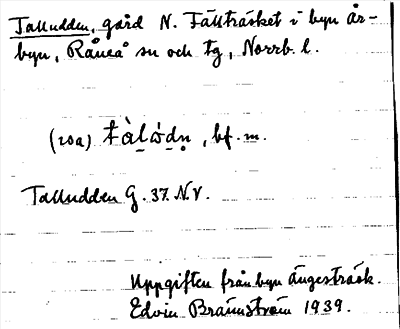 Talludden, gård N. Fällträsket i byn År-
byn, Råneå sn och tg, Norrb. l.
(20a) tàlòdn, bf. m.
Talludden G. 37. N.V.
Uppgiften från byn Ängesträsk.
Edvin Brännström 1939.